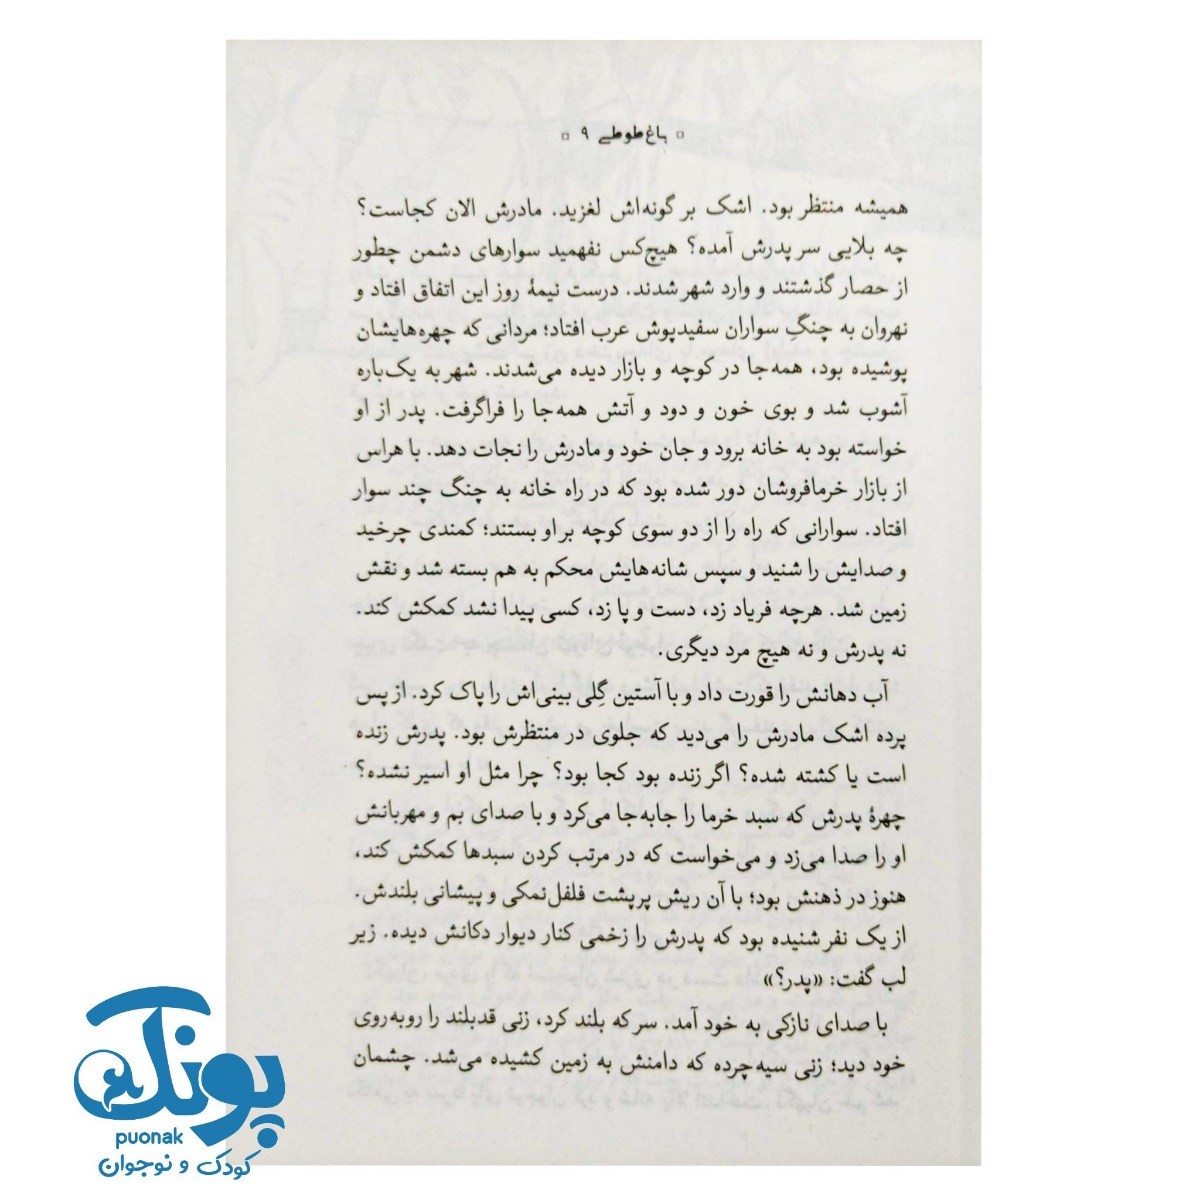 ▫ باغ طوطی ۹ ▫
همیشه منتظر بود. اشک بر گونه‌اش لغزید. مادرش الان کجاست؟
چه بلایی سر پدرش آمده؟ هیچ‌کس نفهمید سوارهای دشمن چطور
از حصار گذشتند و وارد شهر شدند. درست نیمهٔ روز این اتفاق افتاد و
نهروان به چنگِ سواران سفیدپوش عرب افتاد؛ مردانی که چهره‌هایشان
پوشیده بود، همه‌جا در کوچه و بازار دیده می‌شدند. شهر به یک‌باره
آشوب شد و بوی خون و دود و آتش همه‌جا را فراگرفت. پدر از او
خواسته بود به خانه برود و جان خود و مادرش را نجات دهد. با هراس
از بازار خرمافروشان دور شده بود که در راه خانه به چنگ چند سوار
افتاد. سوارانی که راه را از دو سوی کوچه بر او بستند؛ کمندی چرخید
و صدایش را شنید و سپس شانه‌هایش محکم به هم بسته شد و نقش
زمین شد. هرچه فریاد زد، دست و پا زد، کسی پیدا نشد کمکش کند.
نه پدرش و نه هیچ مرد دیگری.
آب دهانش را قورت داد و با آستین گِلی بینی‌اش را پاک کرد. از پس
پرده اشک مادرش را می‌دید که جلوی در منتظرش بود. پدرش زنده
است یا کشته شده؟ اگر زنده بود کجا بود؟ چرا مثل او اسیر نشده؟
چهرهٔ پدرش که سبد خرما را جابه‌جا می‌کرد و با صدای بم و مهربانش
او را صدا می‌زد و می‌خواست که در مرتب کردن سبدها کمکش کند،
هنوز در ذهنش بود؛ با آن ریش پرپشت فلفل‌نمکی و پیشانی بلندش.
از یک نفر شنیده بود که پدرش را زخمی کنار دیوار دکانش دیده. زیر
لب گفت: «پدر؟»
با صدای نازکی به خود آمد. سر که بلند کرد، زنی قدبلند را روبه‌روی
خود دید؛ زنی سیه‌چرده که دامنش به زمین کشیده می‌شد. چشمان
پونک
puonak
کودک و نوجوان